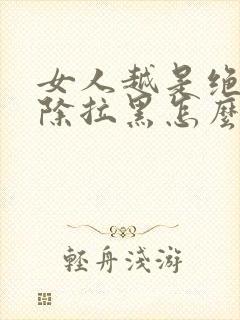 女人越是绝
除拉黑怎麽
輕舟淺游